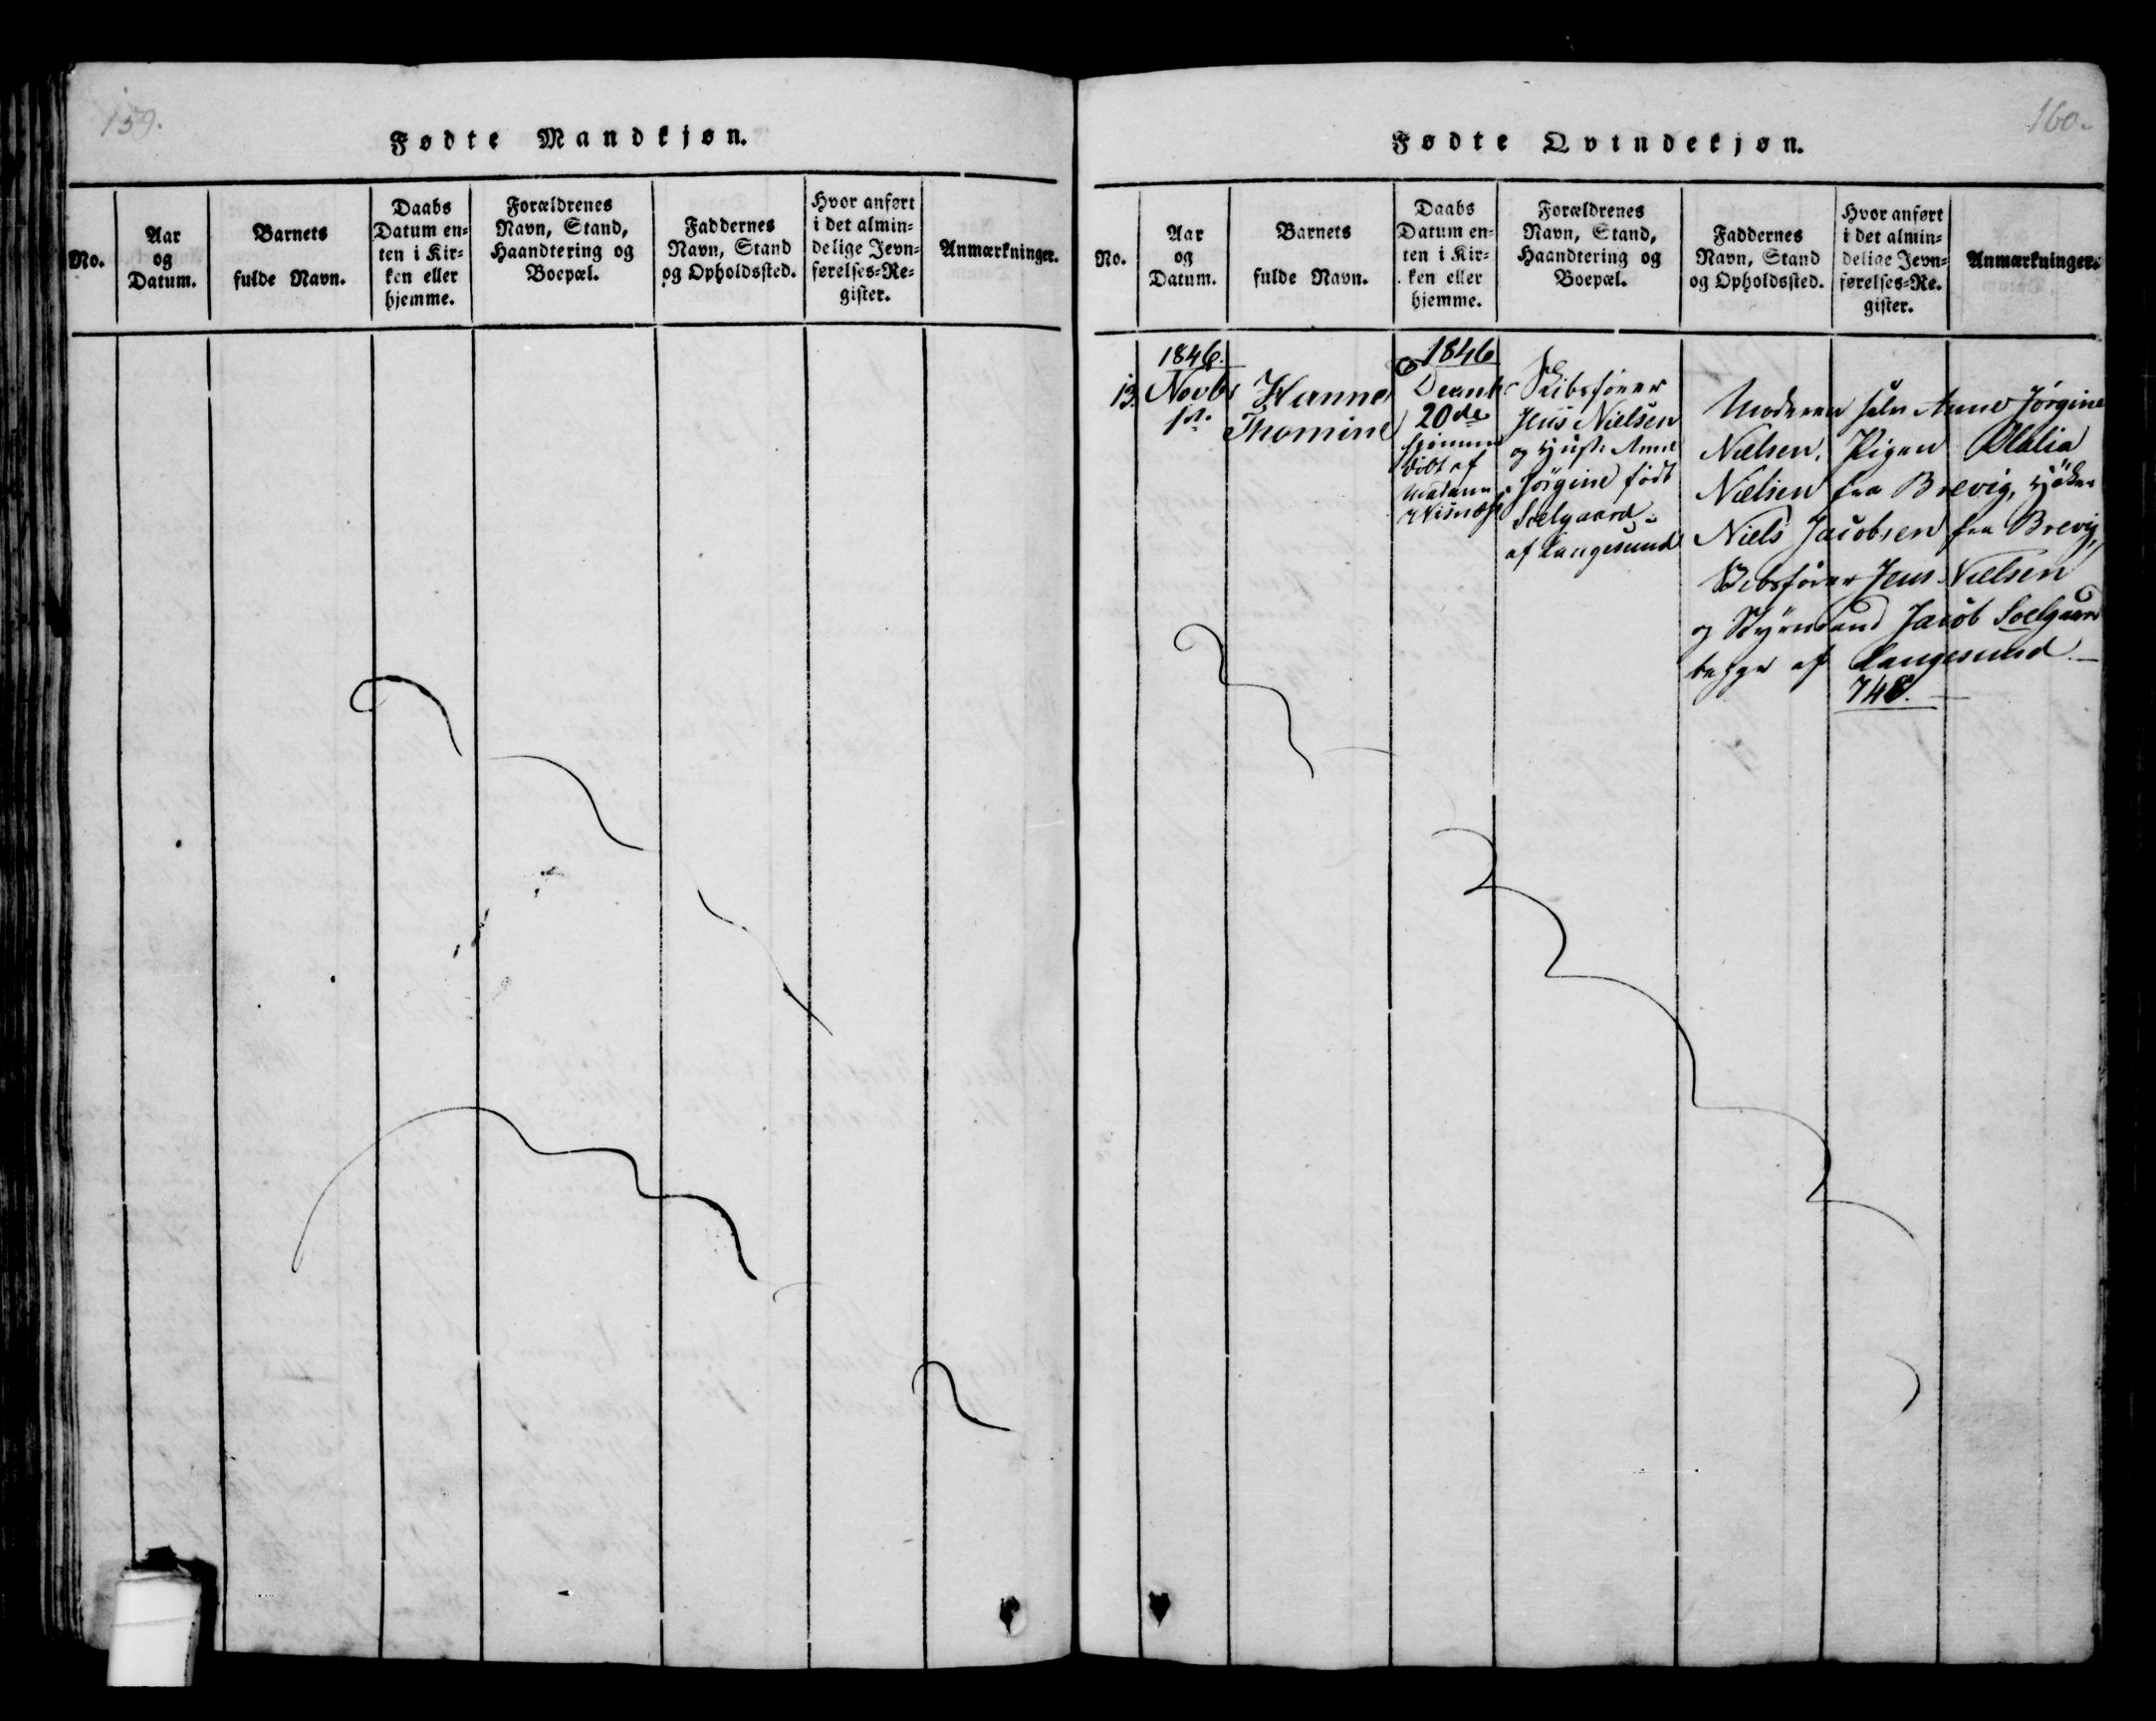 159.
Fødte Mandkjøn.
No.
Aar
og
Datum.
Barnets
fulde Navn.
Daabs
Datum en=
ten i Kir=
ken eller
hjemme.
Forældrenes
Navn, Stand,
Haandtering og
Boepæl.
Faddernes
Navn, Stand
og Opholdssted.
Hvor anført
i det almin=
delige Jevn=
førelses=Re=
gister.
Anmærkninger.
160.
Fødte Qvindekjøn.
No.
Aar
og
Datum.
Barnets
fulde Navn.
Daabs
Datum en=
ten i Kir=
ken eller
hjemme.
Forældrenes
Navn, Stand,
Haandtering og
Boepæl.
Faddernes
Navn, Stand
og Opholdssted.
Hvor anført
i det almin=
delige Jevn=
førelses=Re=
gister.
Anmærkninger.
13.
1846.
Novbr
1ste
Hanne
Thomine
1846
Decemb
20de
hjemme
døbt af
Madame
Skibsfører
Jens Nielsen
og Hustr. Anne
Jørgine født
Soelgaard
af Langesund
Moderen selv Anne Jørgine
Nielsen, Pigen
Nielsen fra Brevig,
Niels Jacobsen fra Brevig,
Skibsfører Jens Nielsen
og Styrmand Jacob Soelgaard
begge af Langesund.
748.